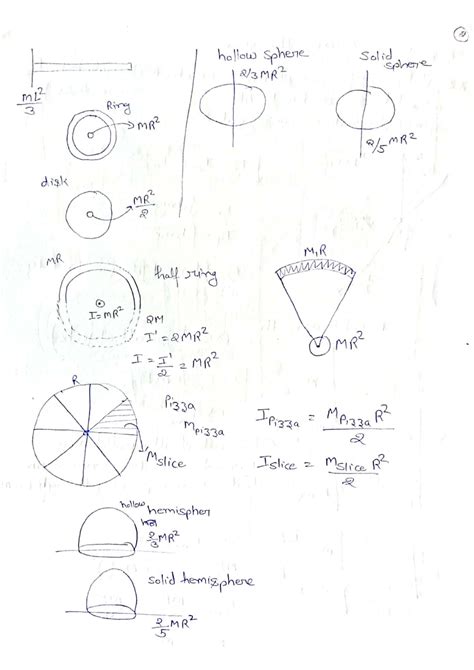 11
hollow sphere
2/3 MR²
Solid
sphere
2/5 MR²
ML²/3
Ring
MR²
disk
MR²/2
MR
half ring
I = MR²
2M
I' = 2MR²
I = I'/2 = MR²
M, R
MR²
R
Pizza
M Pizza
M slice
I Pizza = M Pizza R²/2
I slice = M slice R²/2
hollow hemispher
2/3 MR²
solid hemisphere
2/5 MR²